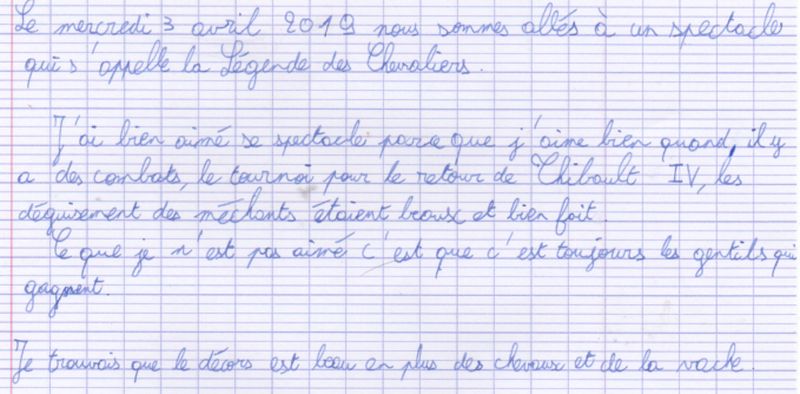 Le mercredi 3 avril 2019 nous sommes allés à un spectacle
qui s'appelle la Légende des Chevaliers.
J'ai bien aimé se spectacle parce que j'aime bien quand, il y
a des combats, le tournoi pour le retour de Thibault IV, les
déguisement des méchants étaient beaux et bien fait.
Ce que je n'est pas aimé c'est que c'est toujours les gentils qui
gagnent.
Je trouvais que le décors est beau en plus des chevaux et de la vache.